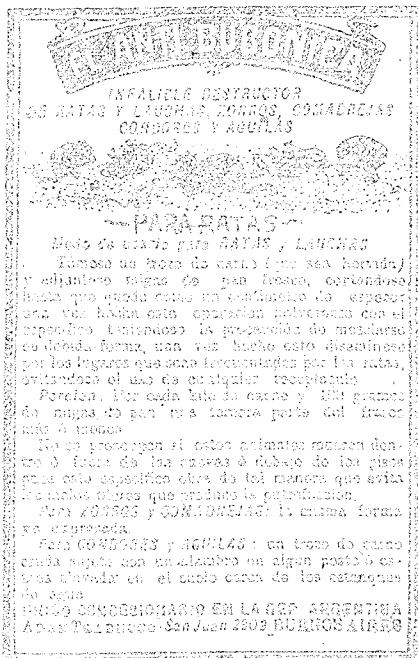 LA ANTI BUBONICA
INFALIBLE DESTRUCTOR
DE RATAS Y LAUCHAS, ZORROS, COMADREJAS
CONDORES Y AGUILAS
PARA RATAS
Modo de usarlo para RATAS y LAUCHAS
Tómese un trozo de carne (que sea hervida)
y adjúntese migas de pan fresco, cortándose
hasta que quede como un de espesor
una vez hecha esta operación polvorease con el
específico teniéndose la precaución de mezclarse
en debida forma, una vez hecho esto diseminese
por los lugares que sean frecuentados por las ratas,
evitándose el uso de cualquier recipiente
Porción: Por cada kilo de carne y 100 gramos
de migas de pan una tercera parte del frasco
más ó menos
No se preocupen si estos animales mueren den-
tro ó fuera de las cuevas ó debajo de los pisos
pues este específico obra de tal manera que evita
los malos olores que produce la putrefacción.
Para ZORROS y COMADREJAS: la misma forma
ya expresada.
Para CONDORES y AGUILAS: un trozo de carne
cruda sujeta con un alambre en algun poste ó es-
taca clavada en el suelo cerca de los estanques
de agua
UNICO CONCESIONARIO EN LA REP ARGENTINA
San Juan 2909 BUENOS AIRES